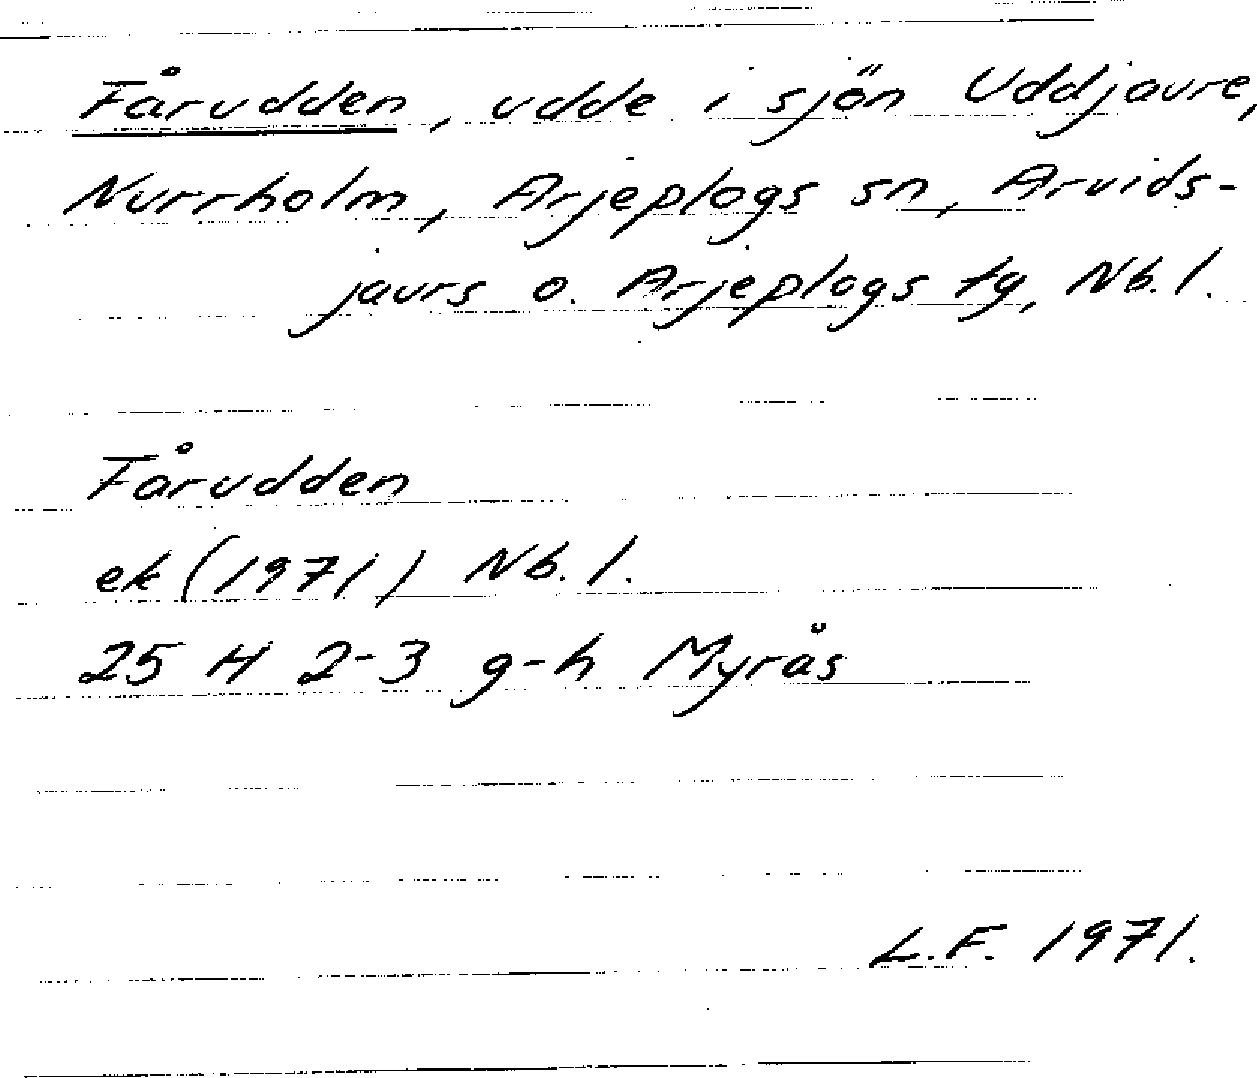 Fårudden, udde i sjön Uddjaure,
Nurrholm, Arjeplogs sn, Arvids-
jaurs o. Arjeplogs tg, Nb. l.
Fårudden
ek (1971) Nb. l.
25 H 2-3 g-h Myrås
L.F. 1971.